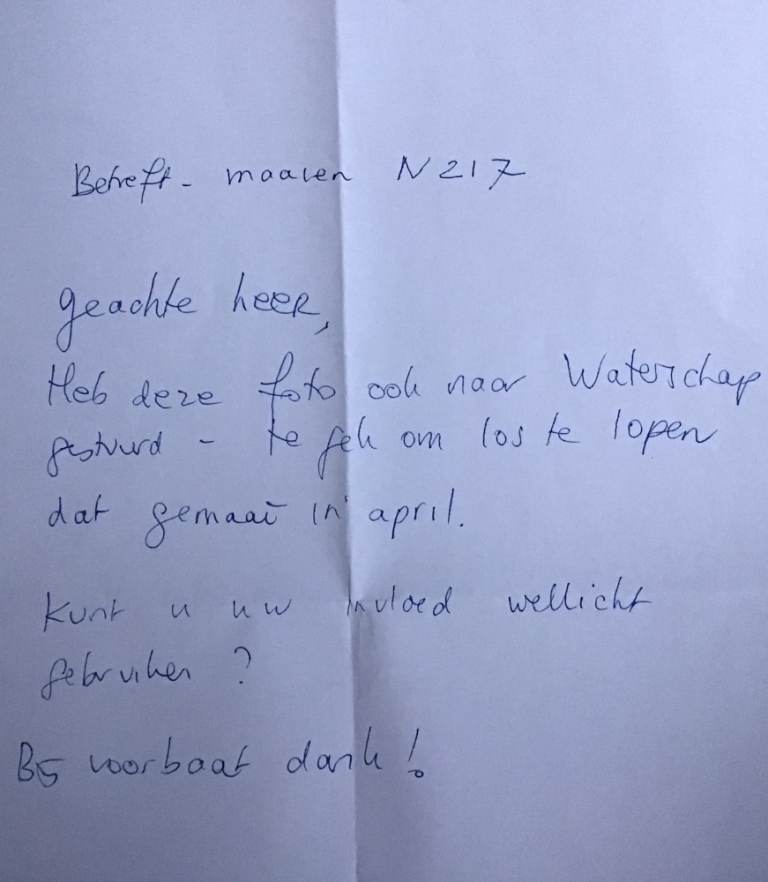 Betreft - maaien N217
geachte heer,
Heb deze foto ook naar Waterschap
gestuurd - te gek om los te lopen
dat gemaai in april.
Kunt u uw invloed wellicht
gebruiken ?
Bij voorbaat dank!